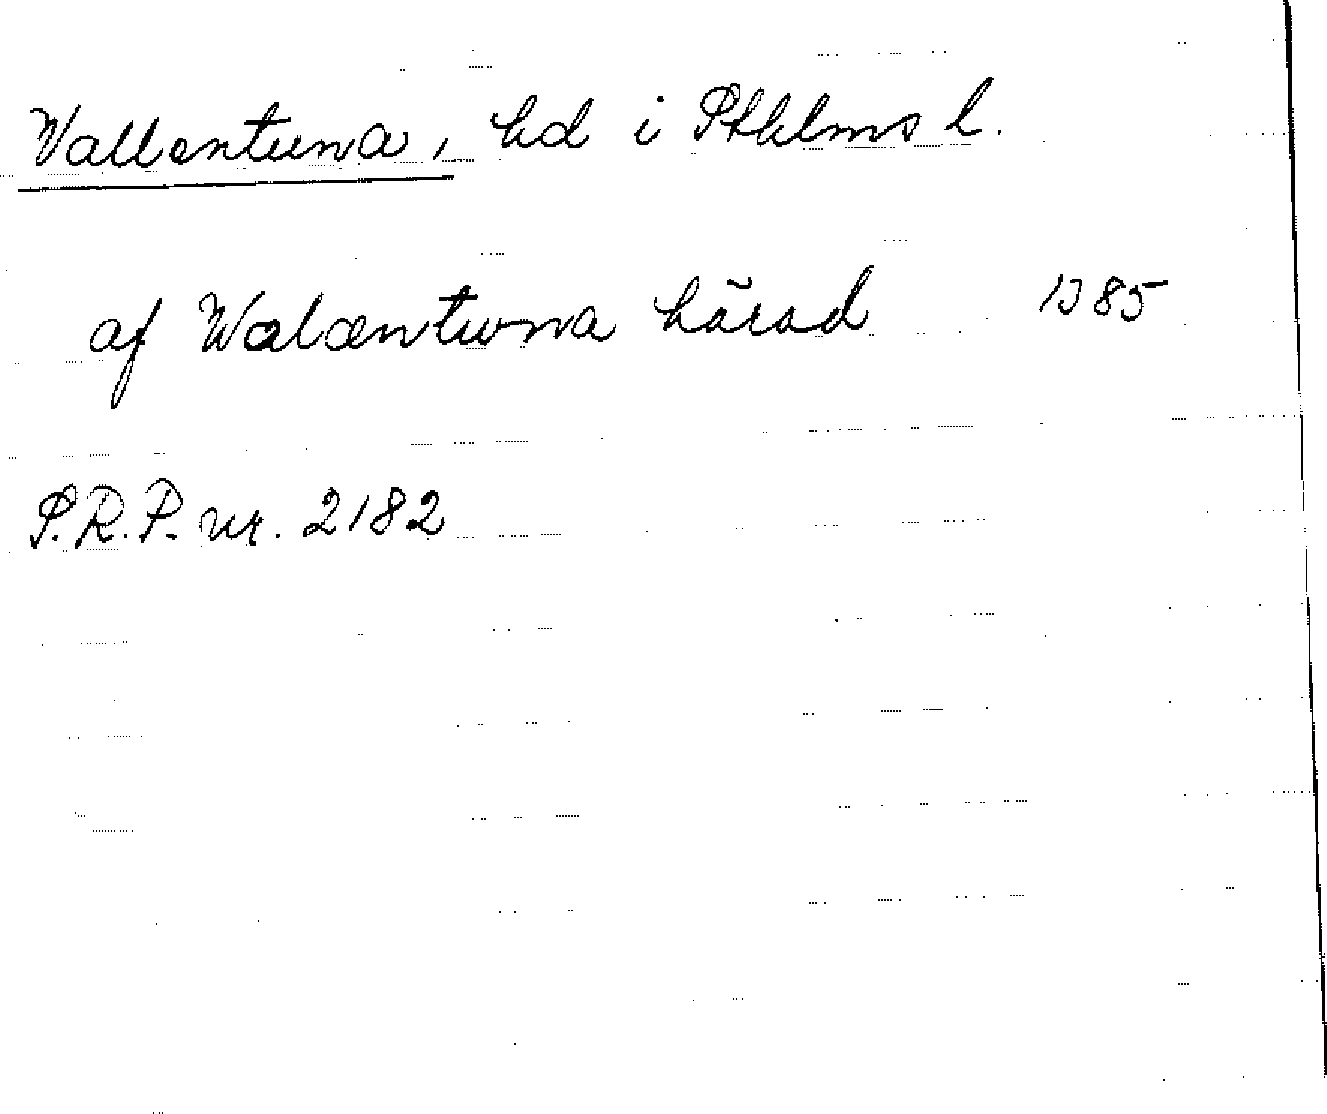 Vallentuna, hd i Sthlms l.
af Walæntuna härad 1385
S.R.P. nr. 2182